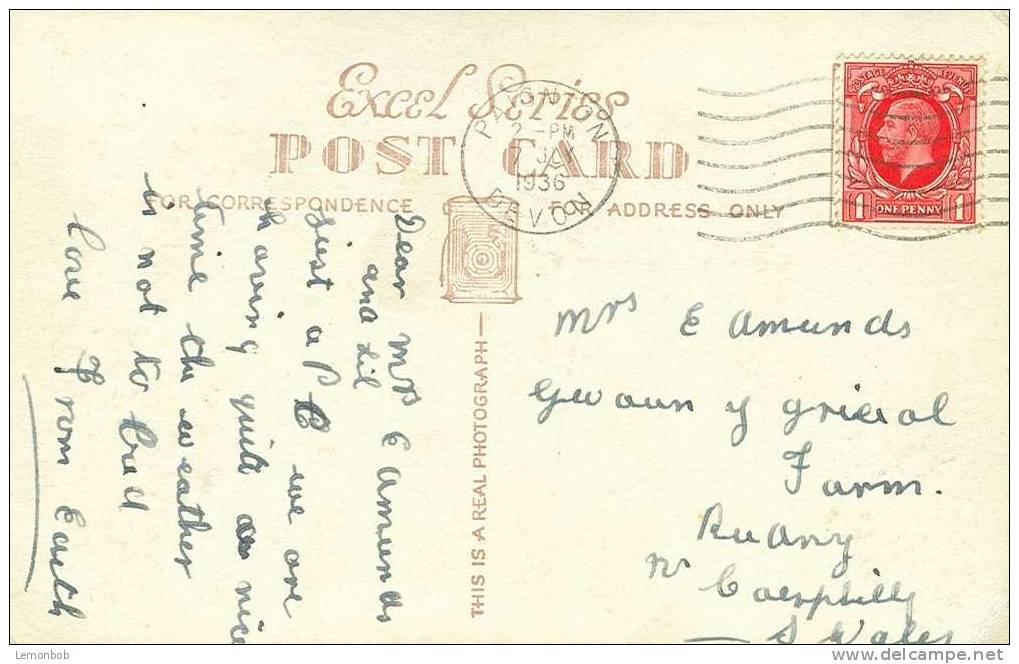 Excel Series
POST CARD
FOR CORRESPONDENCE
FOR ADDRESS ONLY
THIS IS A REAL PHOTOGRAPH
POSTAGE REVENUE
1 ONE PENNY 1
2 - PM
1936
DEVON
Dear Mrs Edmunds
and Lil
just a P C we are
having quite a nice
time the weather
is not to bad
love from Edith
Mrs Edmunds
Gwaun y
Farm.
Rudry
Nr Caerphilly
S Wales
Lemonbob
delcampe.net